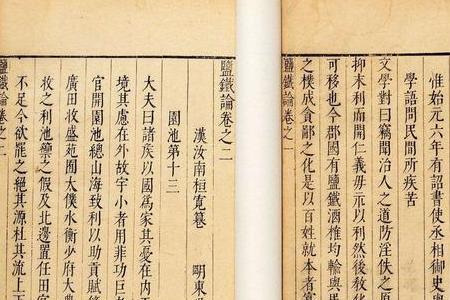 惟始元六年有詔書使丞相御史與
學語問民間所疾苦
文學對曰竊聞治人之道防淫佚之原
抑末利而開仁義毋示以利然後敎化
可移也今郡國有鹽鐵酒榷均輸與民
之樸成貪鄙之化是以百姓就本者寡
鹽鐵論卷之一
鹽鐵論卷之二
漢汝南桓寬譔 明東
園池第十三
大夫曰諸侯以國爲家其憂在內
境其慮在外故宇小者用菲功巨
官開園池總山海致利以助貢賦
廣田收盛苑囿太僕水衡少府大農
牧之利池籞之假及北邊置任田官
不足今欲罷之絕其源杜其流上下
鹽鐵論卷之二